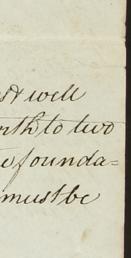 st well
rth to two
e founda=
must be